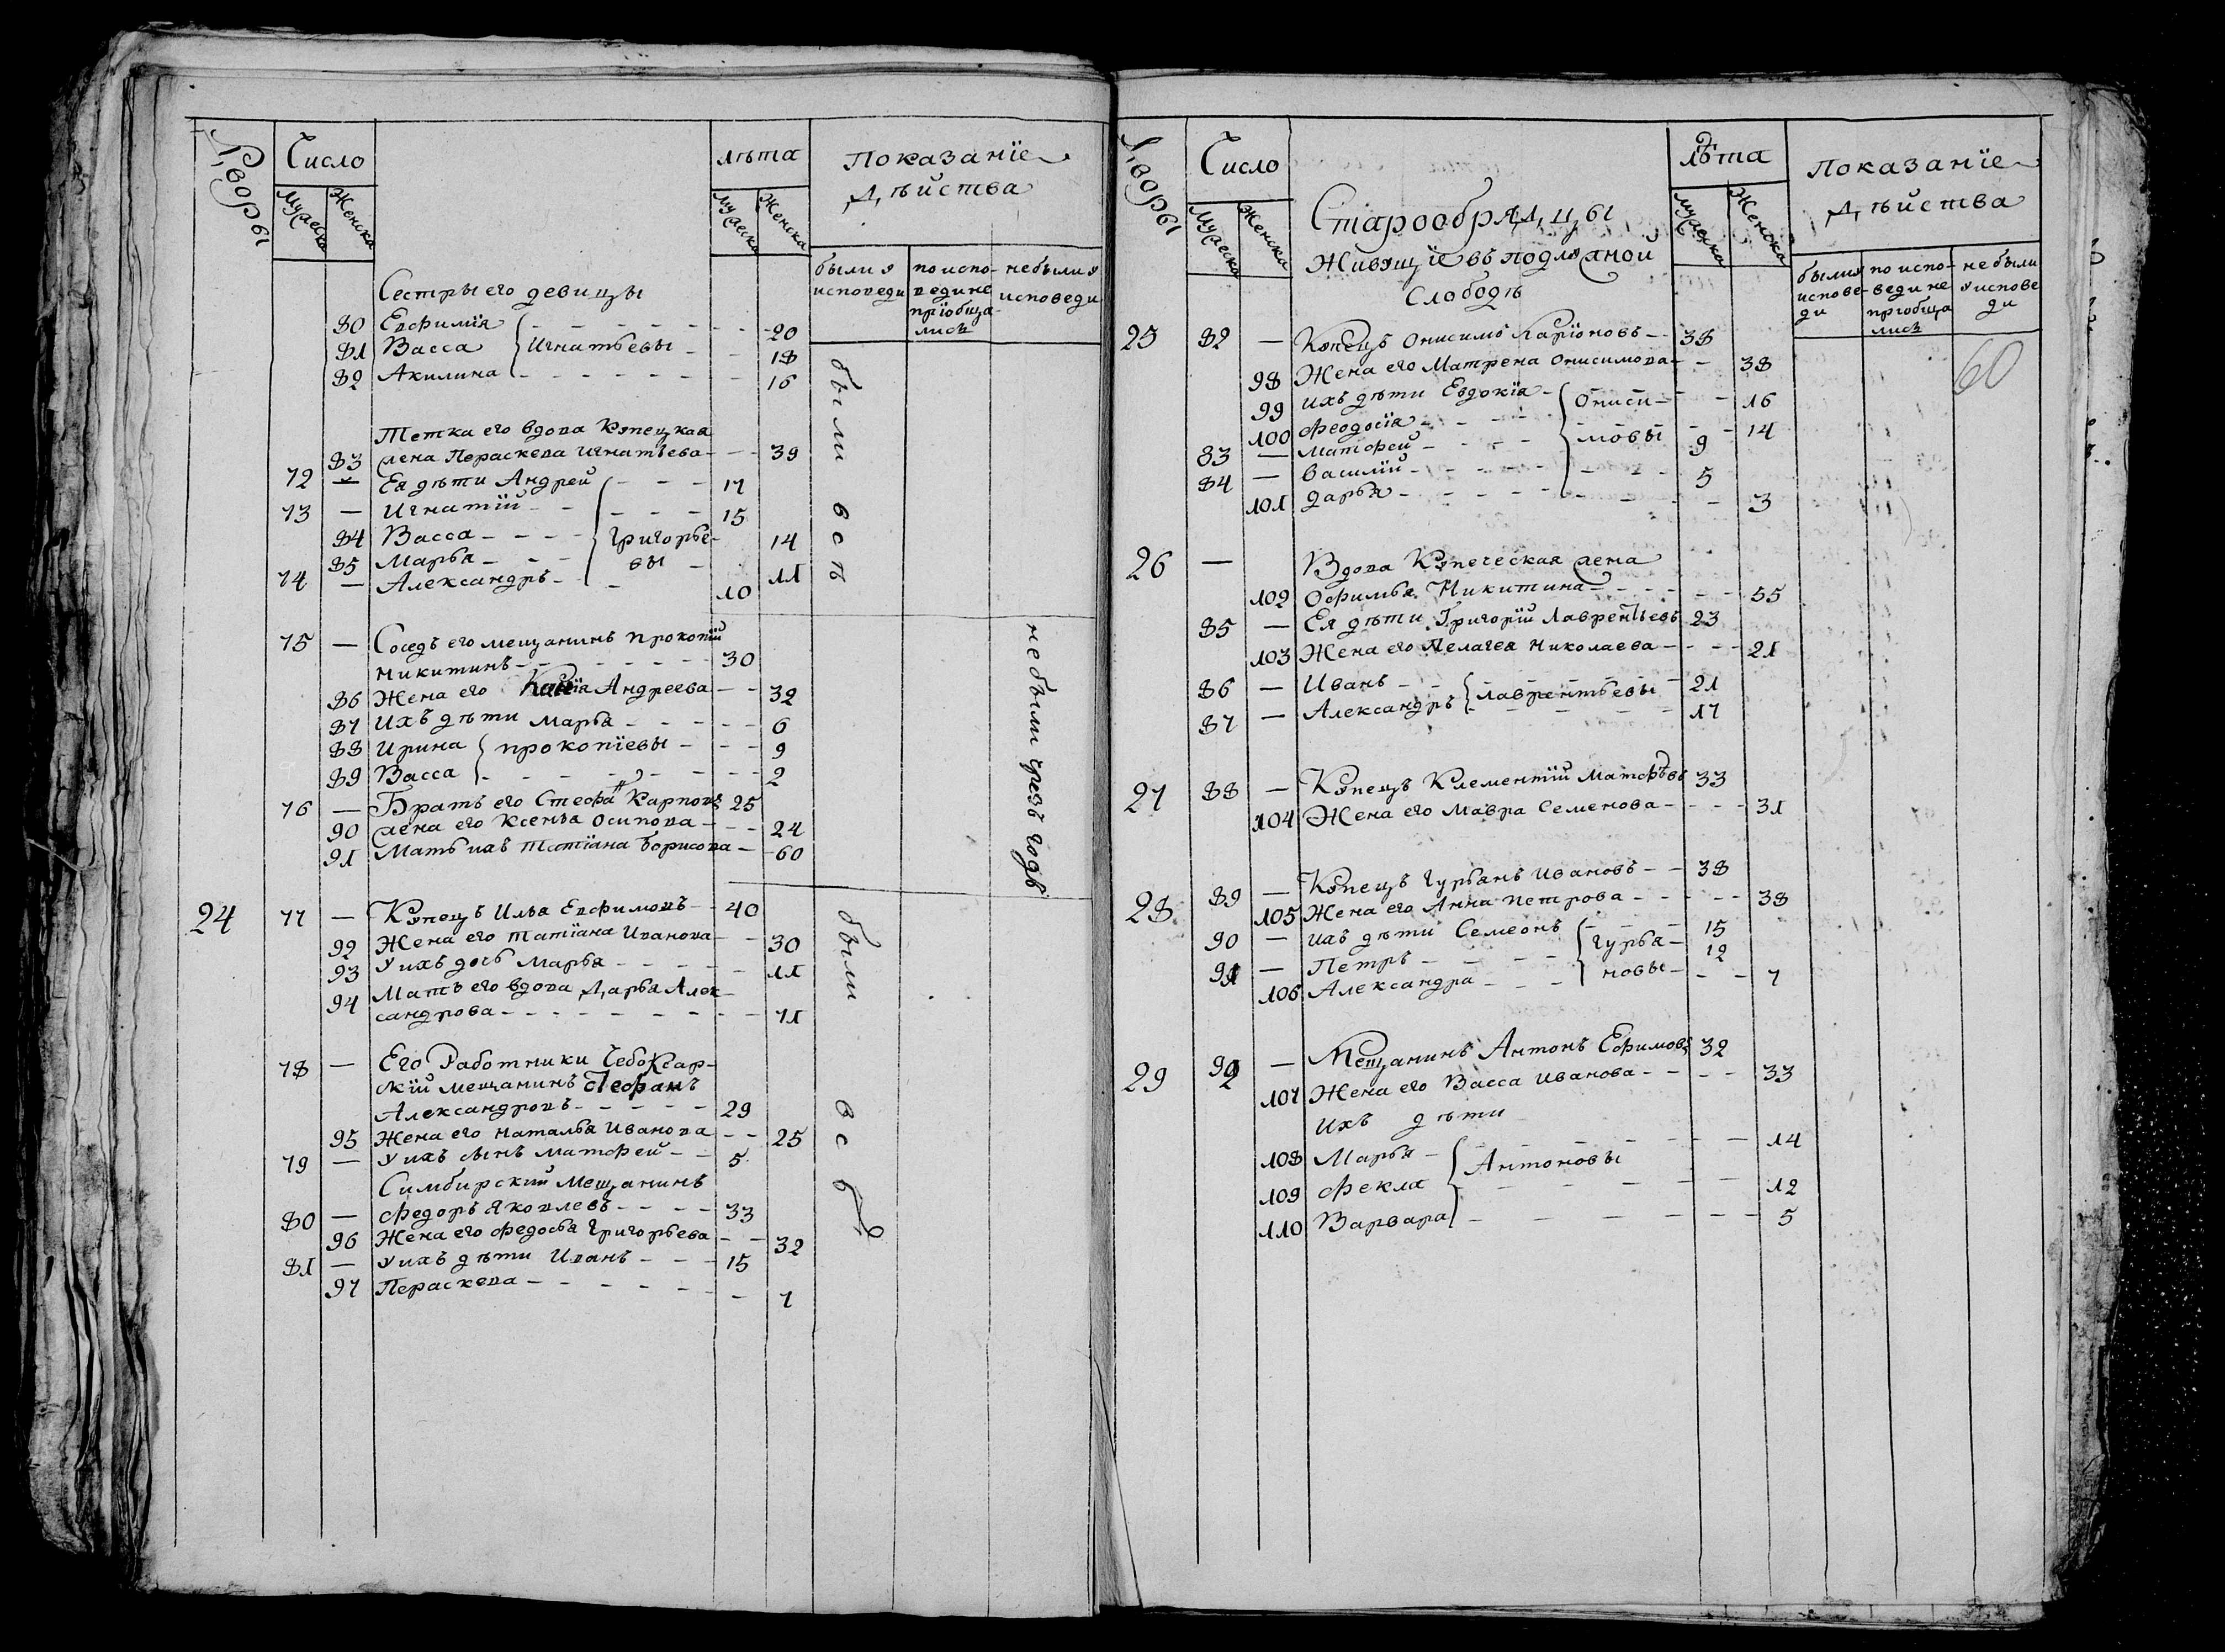 Дворы Число лѣта Показанїе
дѣйства
Мужеска Женска Мужеска Женска
были у исповеди по исповеди не прїобщались не были у исповеди
Сестры его девицы
80 Евфимїя - - - - - - 20
81 Васса Игнатьевы - - 18
82 Акилина - - - - - - 16
Тетка его вдова Купецкая
83 жена Параскева Игнатьева - - 39
72 — Ея дѣти Андрей - - - 17
73 — Игнатїй - - - - - 15
84 Васса - - - - Григорье- 14
85 Марья - - - вы - 11
74 — Александръ - - 10
были все
75 — Соседъ его мещанинъ Прокопїй
Никитинъ - - - - - - - 30
86 Жена его Андреева - - 32
87 Ихъ дѣти Марья - - - - - - 6
88 Ирина Прокопїевы - - - 9
89 Васса - - - - - - - - 2
76 — Братъ его Стефанъ Карповъ 25
90 жена его Ксенья Осипова - - - 24
91 Мать ихъ Татїана Борисова - - 60
не были чрезъ годъ
24 77 — Купецъ Илья Евфимовъ - - 40
92 Жена его Татїана Иванова - - 30
93 У ихъ дочь Марья - - - - - 11
94 Мать его вдова Дарья Алек-
сандрова - - - - - - - - - 71
78 — Его Работники Чебоксар-
скїй мещанинъ Стефанъ
Александровъ - - - - - 29
95 Жена его Наталья Иванова - - 25
79 — У ихъ сынъ Матфей - - 5
Симбирский Мещанинъ
80 — Федоръ Яковлевъ - - - - 33
96 Жена его Федосья Григорьева - - 32
81 — У ихъ дѣти Иванъ - - - 15
97 Пераскева - - - - - - - 7
были все
Дворы Число Лѣта Показанїе
дѣйства
Мужеска Женска Мужеска Женска
были у исповеди по исповеди не прїобщались не были у исповеди
60
Старообрядцы
Живущїе въ подлужной
Слободѣ
25 82 — Купецъ Онисимъ Ларїоновъ - - 38
98 Жена его Матрена Онисимова - - 38
99 ихъ дѣти Евдокїя - Ониси- - - 16
100 Феодосїя - - - - мовы - - 14
83 — Матфей - - - - 9
84 — Василїй - - - - - - - - 5
101 Дарья - - - - - - - - - 3
26 — Вдова Купеческая жена
102 Офимья Никитина - - - - - - 55
85 — Ея дѣти Григорїй Лаврентьевъ 23
103 Жена его Пелагея Николаева - - - - 21
86 — Иванъ - - - - - - - 21
87 — Александръ Лаврентьевы - - - 17
27 88 — Купецъ Клементїй Матфѣевъ 33
104 Жена его Мавра Семенова - - - - 31
28 89 — Купецъ Гурьянъ Ивановъ - - 38
105 Жена его Анна Петрова - - - - - 38
90 — ихъ дѣти Семеонъ - - - 15
91 — Петръ - - - - Гурья- 12
106 Александра - - - новы - - - 7
29 92 — Мещанинъ Антонъ Ефимовъ 32
107 Жена его Васса Иванова - - - - 33
Ихъ дѣти
108 Марья - - - - - - - 14
109 Фекла Антоновы - - - - - 12
110 Варвара - - - - - - 5